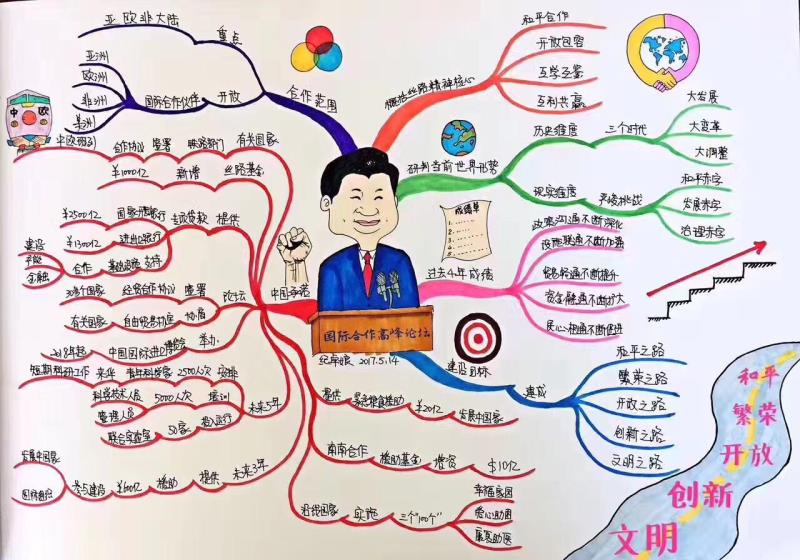 国际合作高峰论坛
2017.5.14
合作范围
重点
亚欧非大陆
开放
国际合作伙伴
亚洲
欧洲
非洲
美洲
概括丝路精神核心
和平合作
开放包容
互学互鉴
互利共赢
研判当前世界形势
历史维度
三个时代
大发展
大变革
大调整
现实维度
严峻挑战
和平赤字
发展赤字
治理赤字
成绩单
1.
2.
3.
4.
5.
过去4年成绩
政策沟通不断深化
设施联通不断加强
贸易畅通不断提升
资金融通不断扩大
民心相通不断促进
建设目标
建成
和平之路
繁荣之路
开放之路
创新之路
文明之路
和平
繁荣
开放
创新
文明
中国承诺
丝路基金
新增
¥1000亿
有关国家
铁路部门
签署
合作协议
中欧班列
中
欧
提供
专项贷款
国家开发银行
¥2500亿
进出口银行
¥1300亿
支持
基础设施
合作
建设
产能
金融
论坛
签署
经贸合作协议
30多个国家
协商
自由贸易协定
有关国家
举办
中国国际进口博览会
2018年起
未来5年
安排
2500人次
青年科学家
来华
短期科研工作
培训
5000人次
科学技术人员
管理人员
投入运行
50家
联合实验室
未来3年
提供
援助
¥600亿
参与建设
发展中国家
国际组织
提供
紧急粮食援助
¥20亿
发展中国家
南南合作
援助基金
增资
$10亿
沿线国家
实施
三个“100个”
幸福家园
爱心助困
康复助医